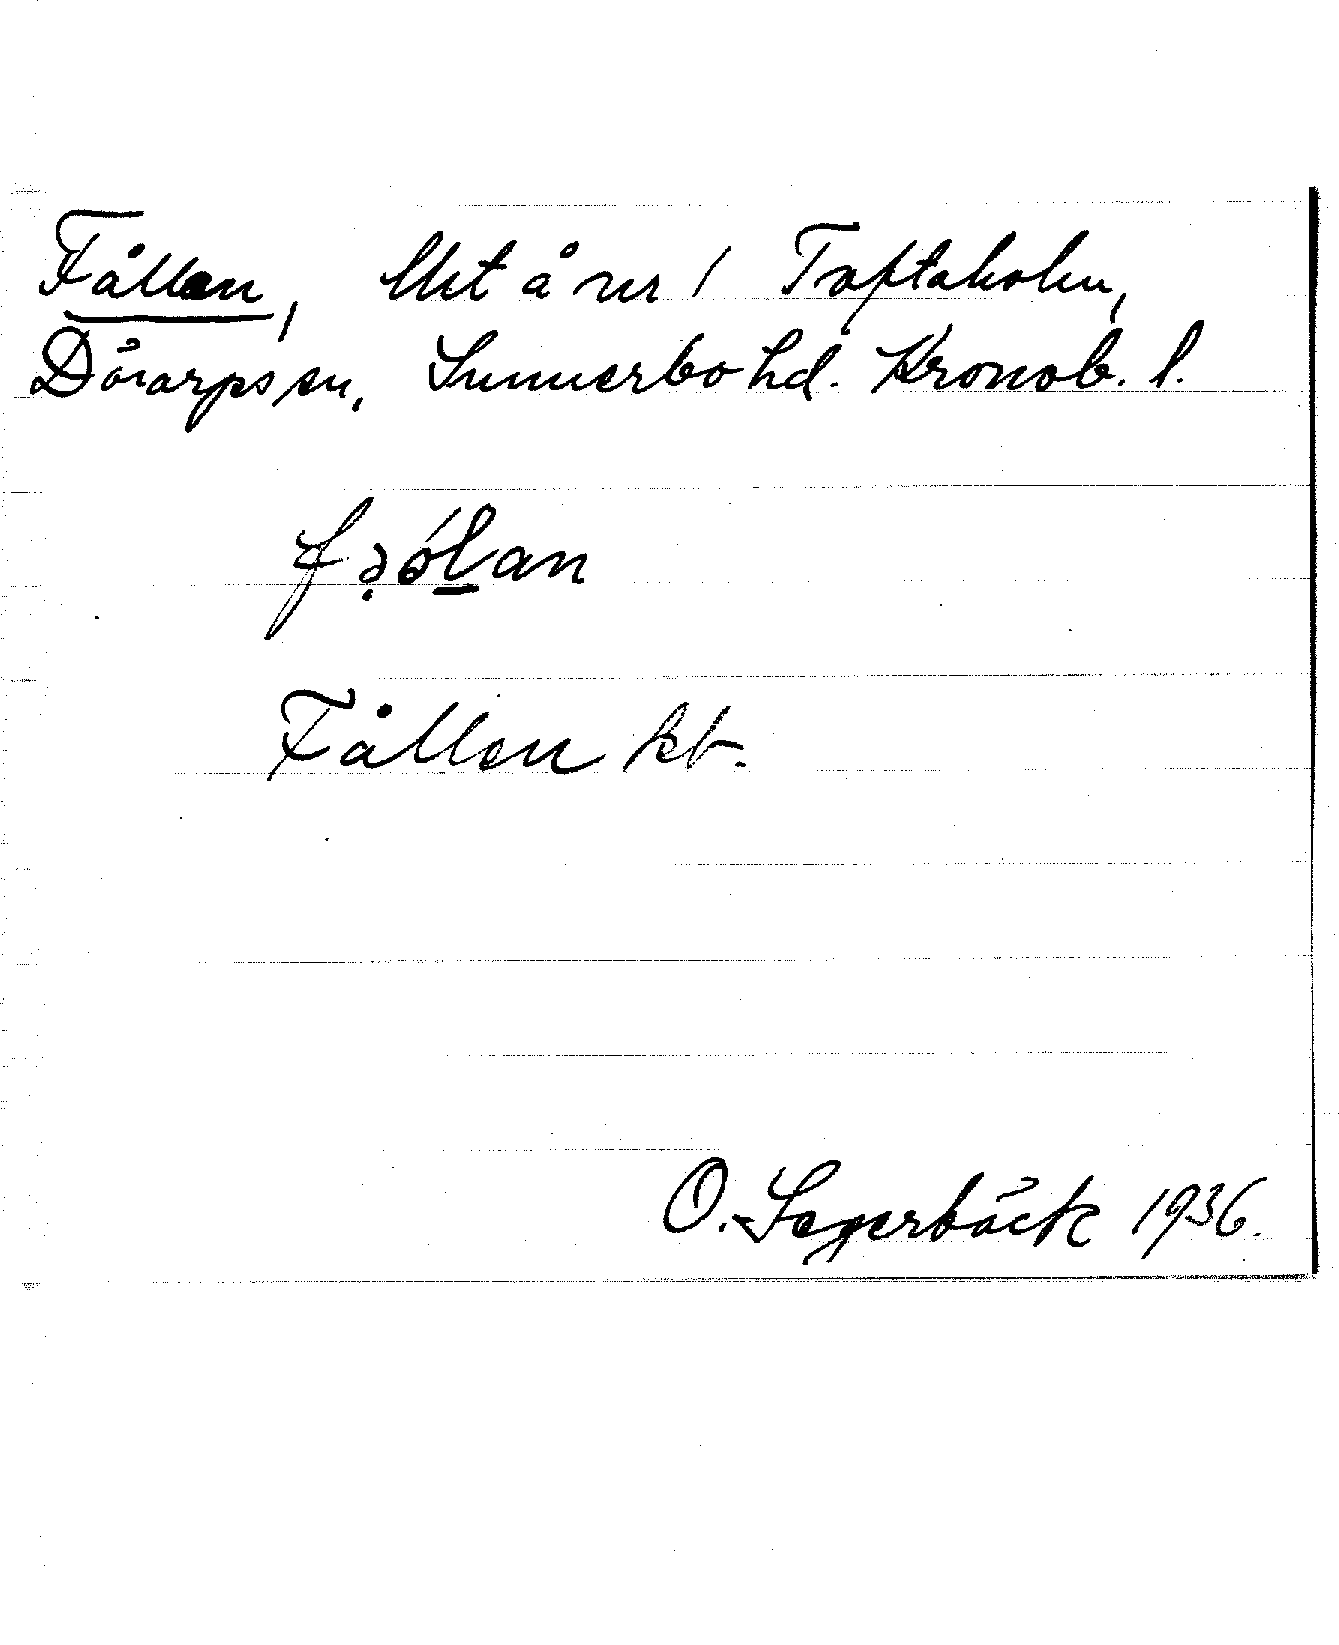 Fållen, lht å nr 1 Toftaholm,
Dörarps sn, Sunnerbo hd. Kronob. l.
fəólan
Fållen kb.
O. Segerbäck 1936.